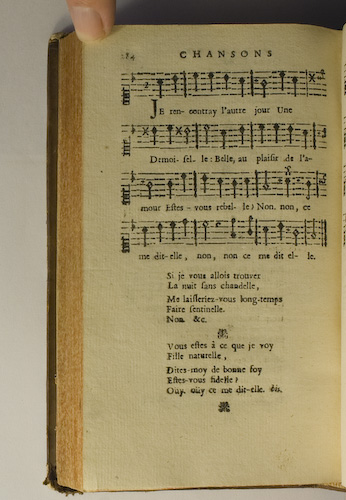 184 CHANSONS
JE ren- contray l'autre jour Une
Demoi- sel- le: Belle, au plaisir de l'a-
mour Estes- vous rebel- le? Non, non, ce
me dit-elle, non, non ce me dit el- le.
Si je vous allois trouver
La nuit sans chandelle,
Me laisseriez-vous long-temps
Faire sentinelle.
Non &c.
Vous estes à ce que je voy
Fille naturelle,
Dites-moy de bonne foy
Estes-vous fidelle?
Oüy, oüy ce me dit-elle. bis.